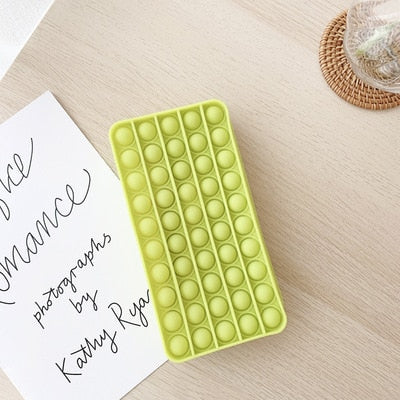 Romance
photographs
by
Kathy Rya